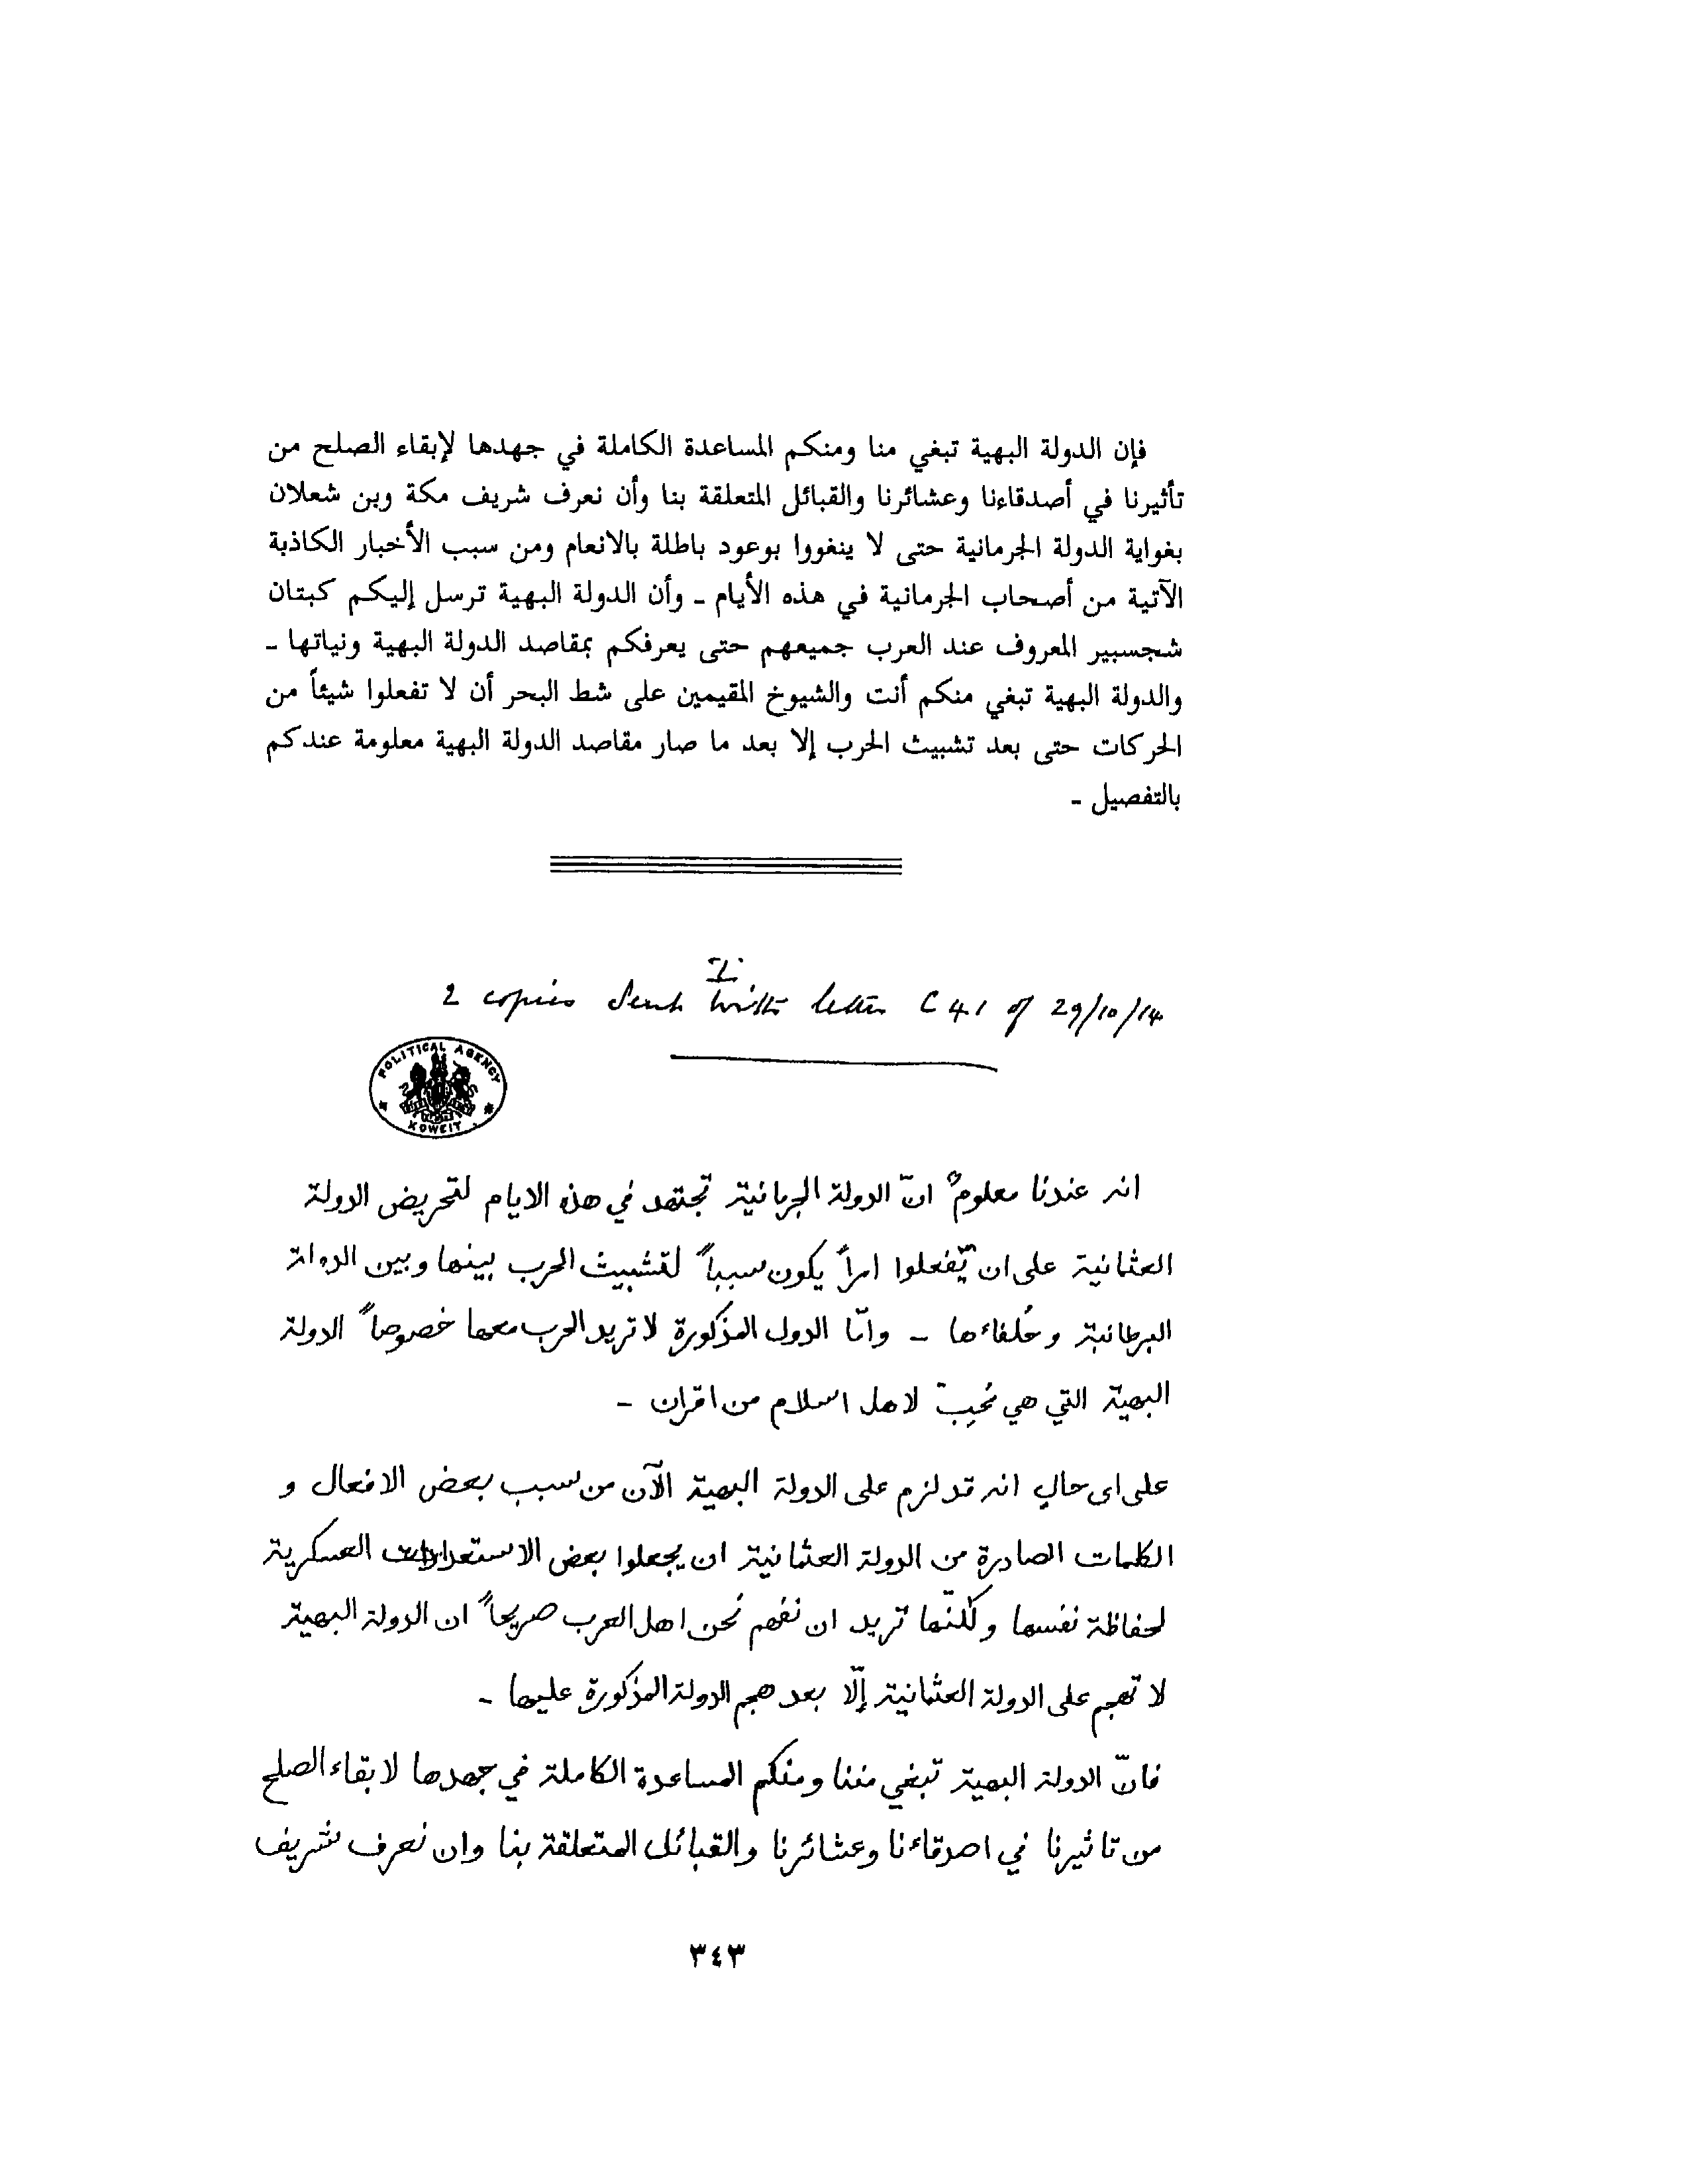 فإن الدولة البهية تبغي منا ومنكم المساعدة الكاملة في جهدها لإبقاء الصلح من
تأثيرنا في أصدقاءنا وعشائرنا والقبائل المتعلقة بنا وأن نعرف شريف مكة وبن شعلان
بغواية الدولة الجرمانية حتى لا ينغووا بوعود باطلة بالانعام ومن سبب الأخبار الكاذبة
الآتية من أصحاب الجرمانية في هذه الأيام ـ وأن الدولة البهية ترسل إليكم كبتان
شجسبير المعروف عند العرب جميعهم حتى يعرفكم بمقاصد الدولة البهية ونياتها ـ
والدولة البهية تبغي منكم أنت والشيوخ المقيمين على شط البحر أن لا تفعلوا شيئاً من
الحركات حتى بعد تشبيث الحرب إلا بعد ما صار مقاصد الدولة البهية معلومة عندكم
بالتفصيل ـ
I
2 copies sent with letter C 41 of 29/10/14
POLITICAL AGENCY
KOWEIT
انه عندنا معلومٌ انّ الدولة الجرمانية تجتهد في هذه الايام لتحريض الدولة
العثمانية على ان يّفعلوا امراً يكون سبباً لتشبيث الحرب بينها وبين الدولة
البرطانية وحُلفاءها ـ وامّا الدول المذكورة لا تريد الحرب معها خصوصاً الدولة
البهيّة التي هي مُحِبّ لاهل اسلام من اقران ـ
على اى حالٍ انه قد لزم على الدولة البهية الآن من سبب بعض الافعال و
الكلمات الصادرة من الدولة العثمانية ان يجعلوا بعض الاستعدادات العسكرية
لحفاظة نفسها ولكنّها تريد ان نفهم نحن اهل العرب صريحاً ان الدولة البهية
لا تهجم على الدولة العثمانية إلّا بعد هجم الدولة المذكورة عليها ـ
فانّ الدولة البهية تبغي مننا ومنكم المساعدة الكاملة في جهدها لابقاء الصلح
من تاثيرنا في اصدقاءنا وعشائرنا والقبائل المتعلقة بنا وان نعرف شريف
٣٤٣